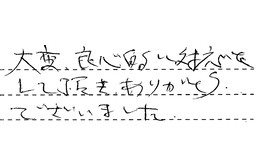 大変、良心的い対応を
して頂きありがとう
ございました.